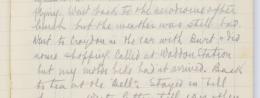 flying. Went back to the aerodrome after
lunch but the weather was still bad.
Went to Croydon in the car with Burt & did
some shopping. Called at Waddon Station
but my motor bike had not arrived. Back
to tea at the "Bell". Stayed in till